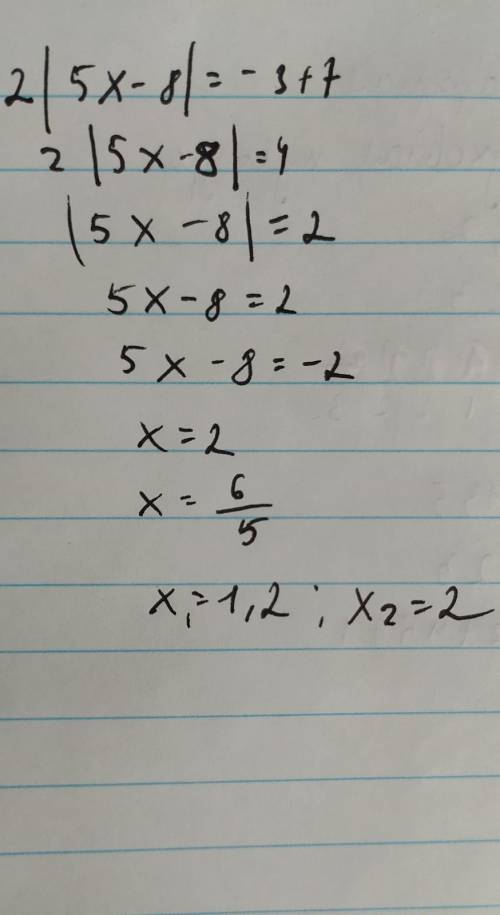 2|5x-8|=-3+7
2|5x-8|=4
|5x-8|=2
5x-8=2
5x-8=-2
x=2
x=6/5
x₁=1,2; x₂=2